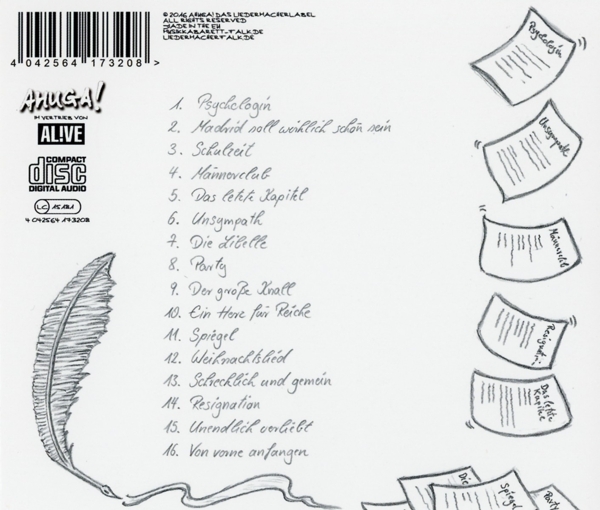 © 2016 AHUGA! DAS LIEDERMACHERLABEL
ALL RIGHTS RESERVED
MADE IN THE EU
MUSIKKABARETT-TALK.DE
LIEDERMACHERTALK.DE
4 042564 173208 >
AHUGA!
IM VERTRIEB VON
AL!VE
COMPACT
disc
DIGITAL AUDIO
LC 15181
4 042564 173208
1. Psychologin
2. Madrid soll wirklich schön sein
3. Schulzeit
4. Männerclub
5. Das letzte Kapitel
6. Unsympath
7. Die Libelle
8. Party
9. Der große Knall
10. Ein Herz für Reiche
11. Spiegel
12. Weihnachtslied
13. Schrecklich und gemein
14. Resignation
15. Unendlich verliebt
16. Von vorne anfangen
Psychologin
Unsympath
Männerclub
Das letzte
Kapitel
Die
Spiegel
Party